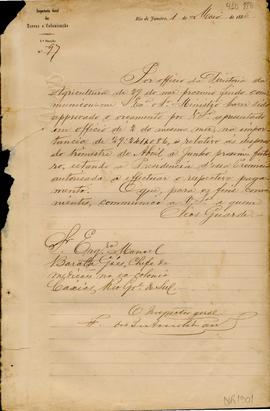 Inspectoria Geral
das
Terras e Colonisação
Nº 97
Rio de Janeiro, 1 de Maio de 188
Por officio da Directoria da
Agricultura de 29 do mez proximo findo com-
municou-me S. Exª o Sr. Ministro haver sido
approvado o orçamento por V. Sª apresentado
com officio de 2 do mesmo mez, na impor-
tancia de e relativo ás despezas
do trimestre de Abril a Junho proximo futu-
ro, estando a Presidencia dessa Provincia
autorisada a effectuar o respectivo paga-
mento. O que, para os fins conve-
nientes, communico a V. Sª a quem
Deos Guarde.
Sr. Engº Manoel
Barata Góes, Chefe da
na ex colonia
Caxias, Rio Gde do Sul
O Inspector geral